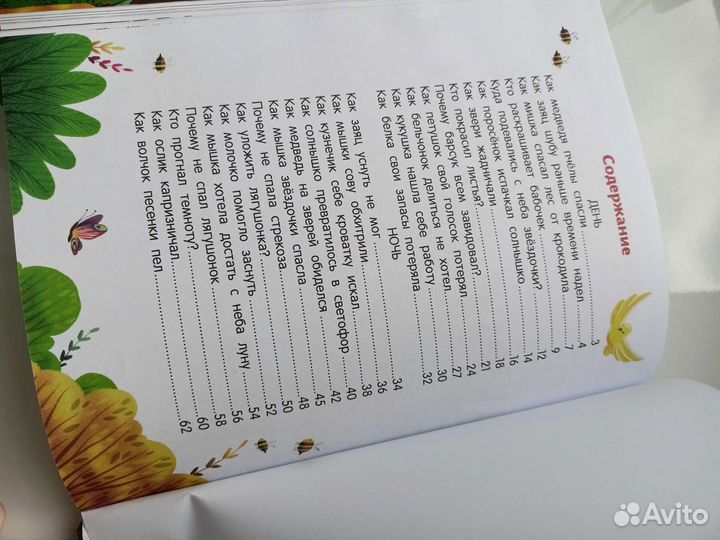 Содержание
ДЕНЬ
Как медведя пчёлы спасли.....3
Как заяц шубу раньше времени надел.....4
Как мишка спасал лес от крокодила.....7
Кто раскрашивает бабочек?.....9
Куда подевались с неба звёздочки?.....12
Как поросёнок испачкал солнышко.....14
Как звери жадничали.....16
Кто покрасил листья?.....18
Почему барсук всем завидовал?.....21
Как петушок свой голосок потерял.....24
Как бельчонок делиться не хотел.....27
Как кукушка нашла себе работу.....30
Как белка свои запасы потеряла.....32
НОЧЬ
Как заяц уснуть не мог.....34
Как мышки сову обхитрили.....36
Как кузнечик себе кроватку искал.....38
Как солнышко превратилось в светофор.....40
Как медведь на зверей обиделся.....42
Как мышка звёздочки спасла.....45
Почему не спала стрекоза.....48
Как уложить лягушонка?.....50
Как молочко помогло заснуть.....52
Как мышка хотела достать с неба луну.....54
Почему не спал лягушонок.....56
Кто прогнал темноту?.....58
Как ослик капризничал.....60
Как волчок песенки пел.....62
Avito